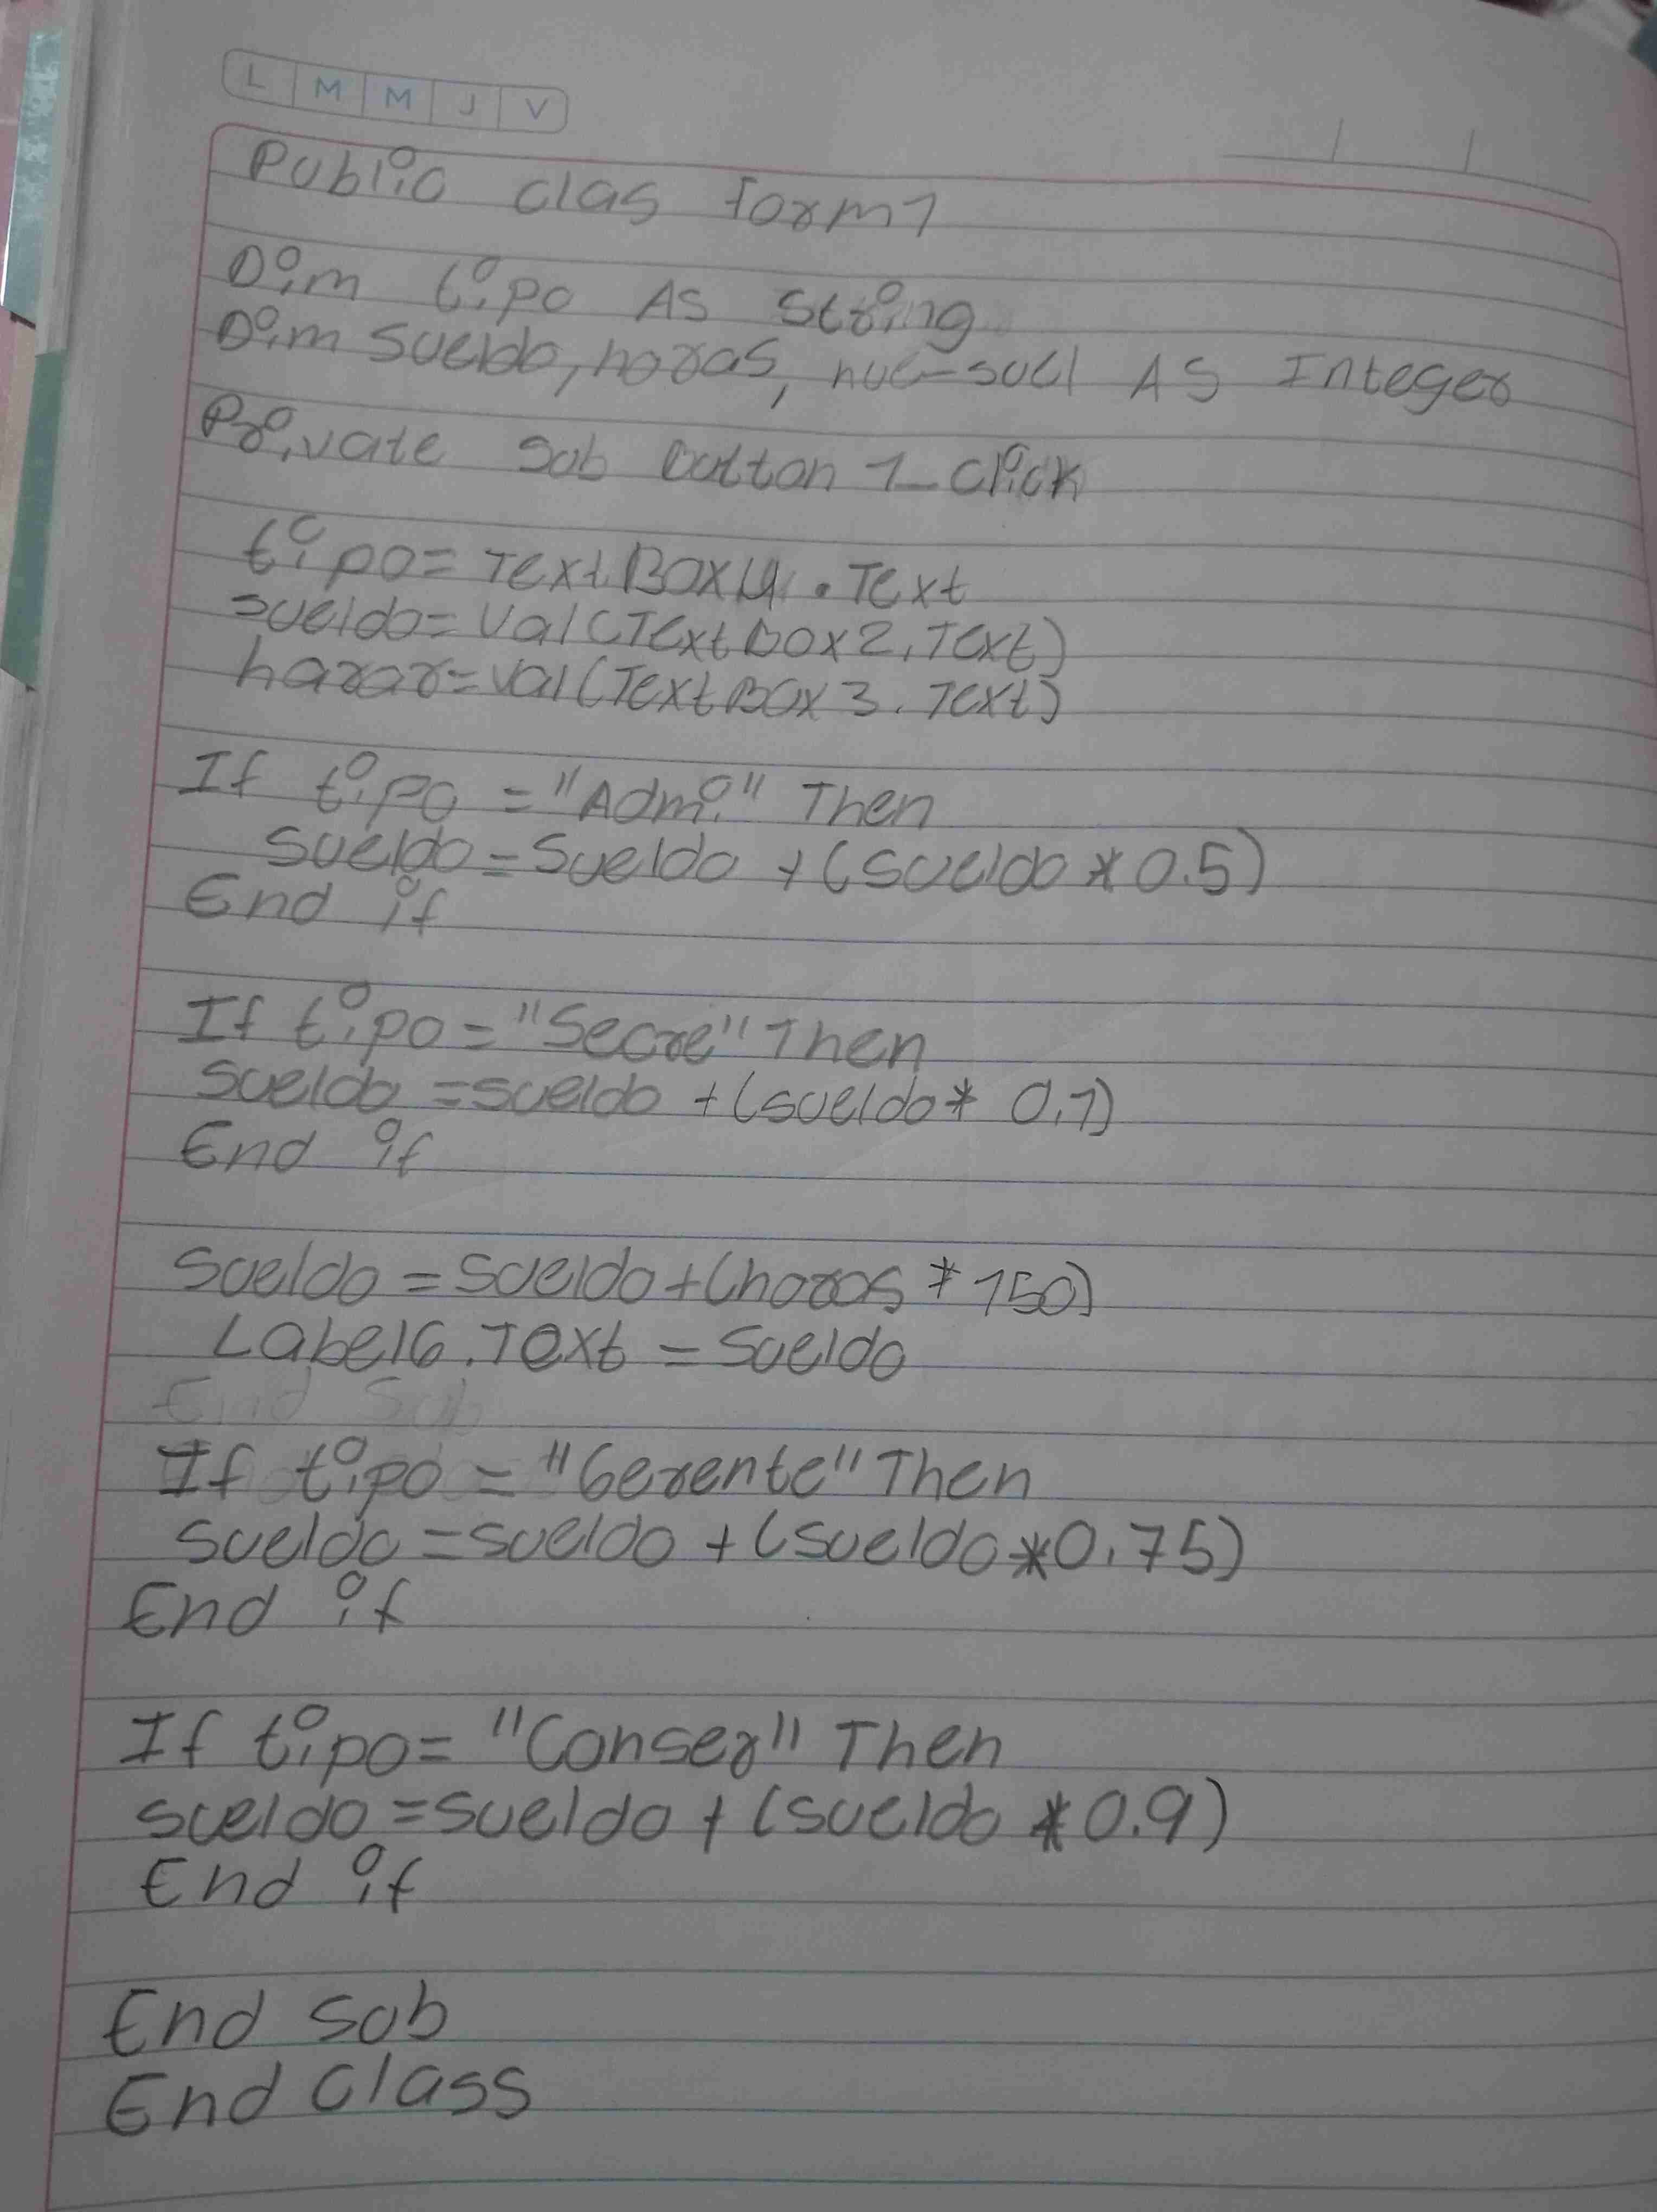 L M M J V
Public clas form1
Dim tipo As String
Dim Sueldo, horas, nue-suel AS Integer
Private Sub button 1_Click
tipo= TextBox4 . Text
sueldo= Val(TextBox2.Text)
harar= val(TextBox3.Text)
If tipo = "Admi" Then
Sueldo = Sueldo + (sueldo * 0.5)
End if
If tipo = "Secre" Then
Sueldo = sueldo + (sueldo * 0.1)
End if
Sueldo = Sueldo + (horas * 150)
Label6.Text = Sueldo
End Sub
If tipo = "Gerente" Then
Sueldo = sueldo + (sueldo * 0.75)
End if
If tipo= "Conser" Then
sueldo = sueldo + (sueldo * 0.9)
End if
End Sub
End Class